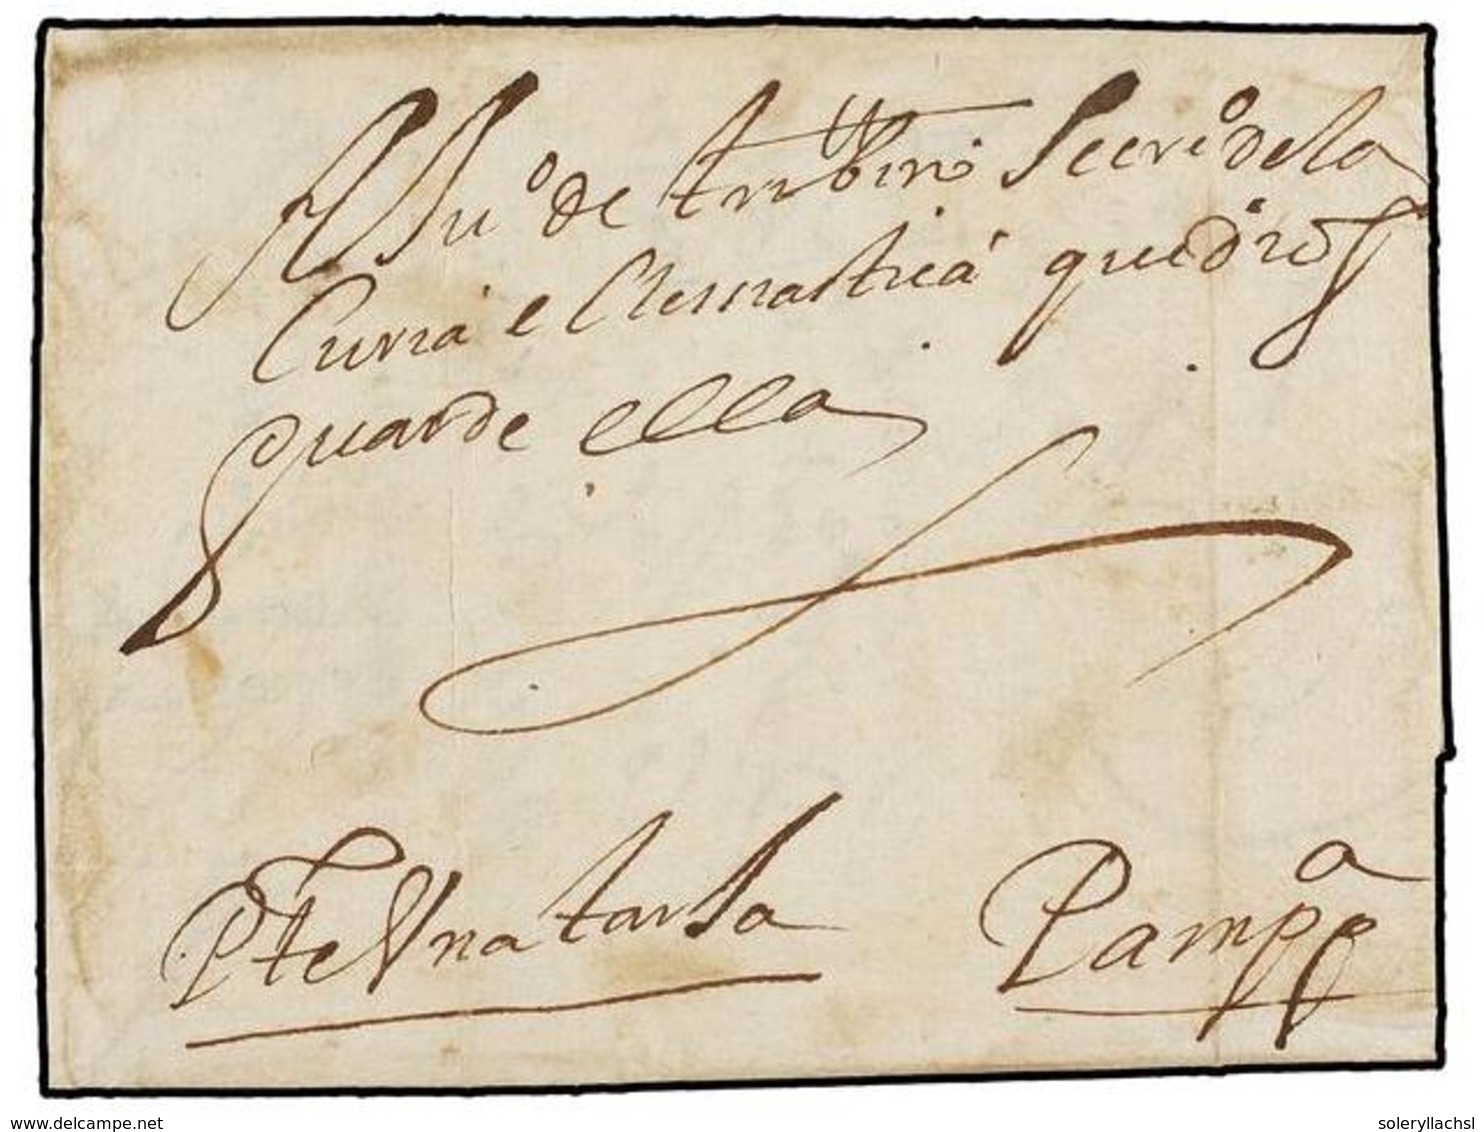 Ju.º de Irubini Secri.º de la
Curia eclesiastica que Dios
guarde en ella
Pte Una tarja Pampª
www.delcampe.net
soleryllachsl